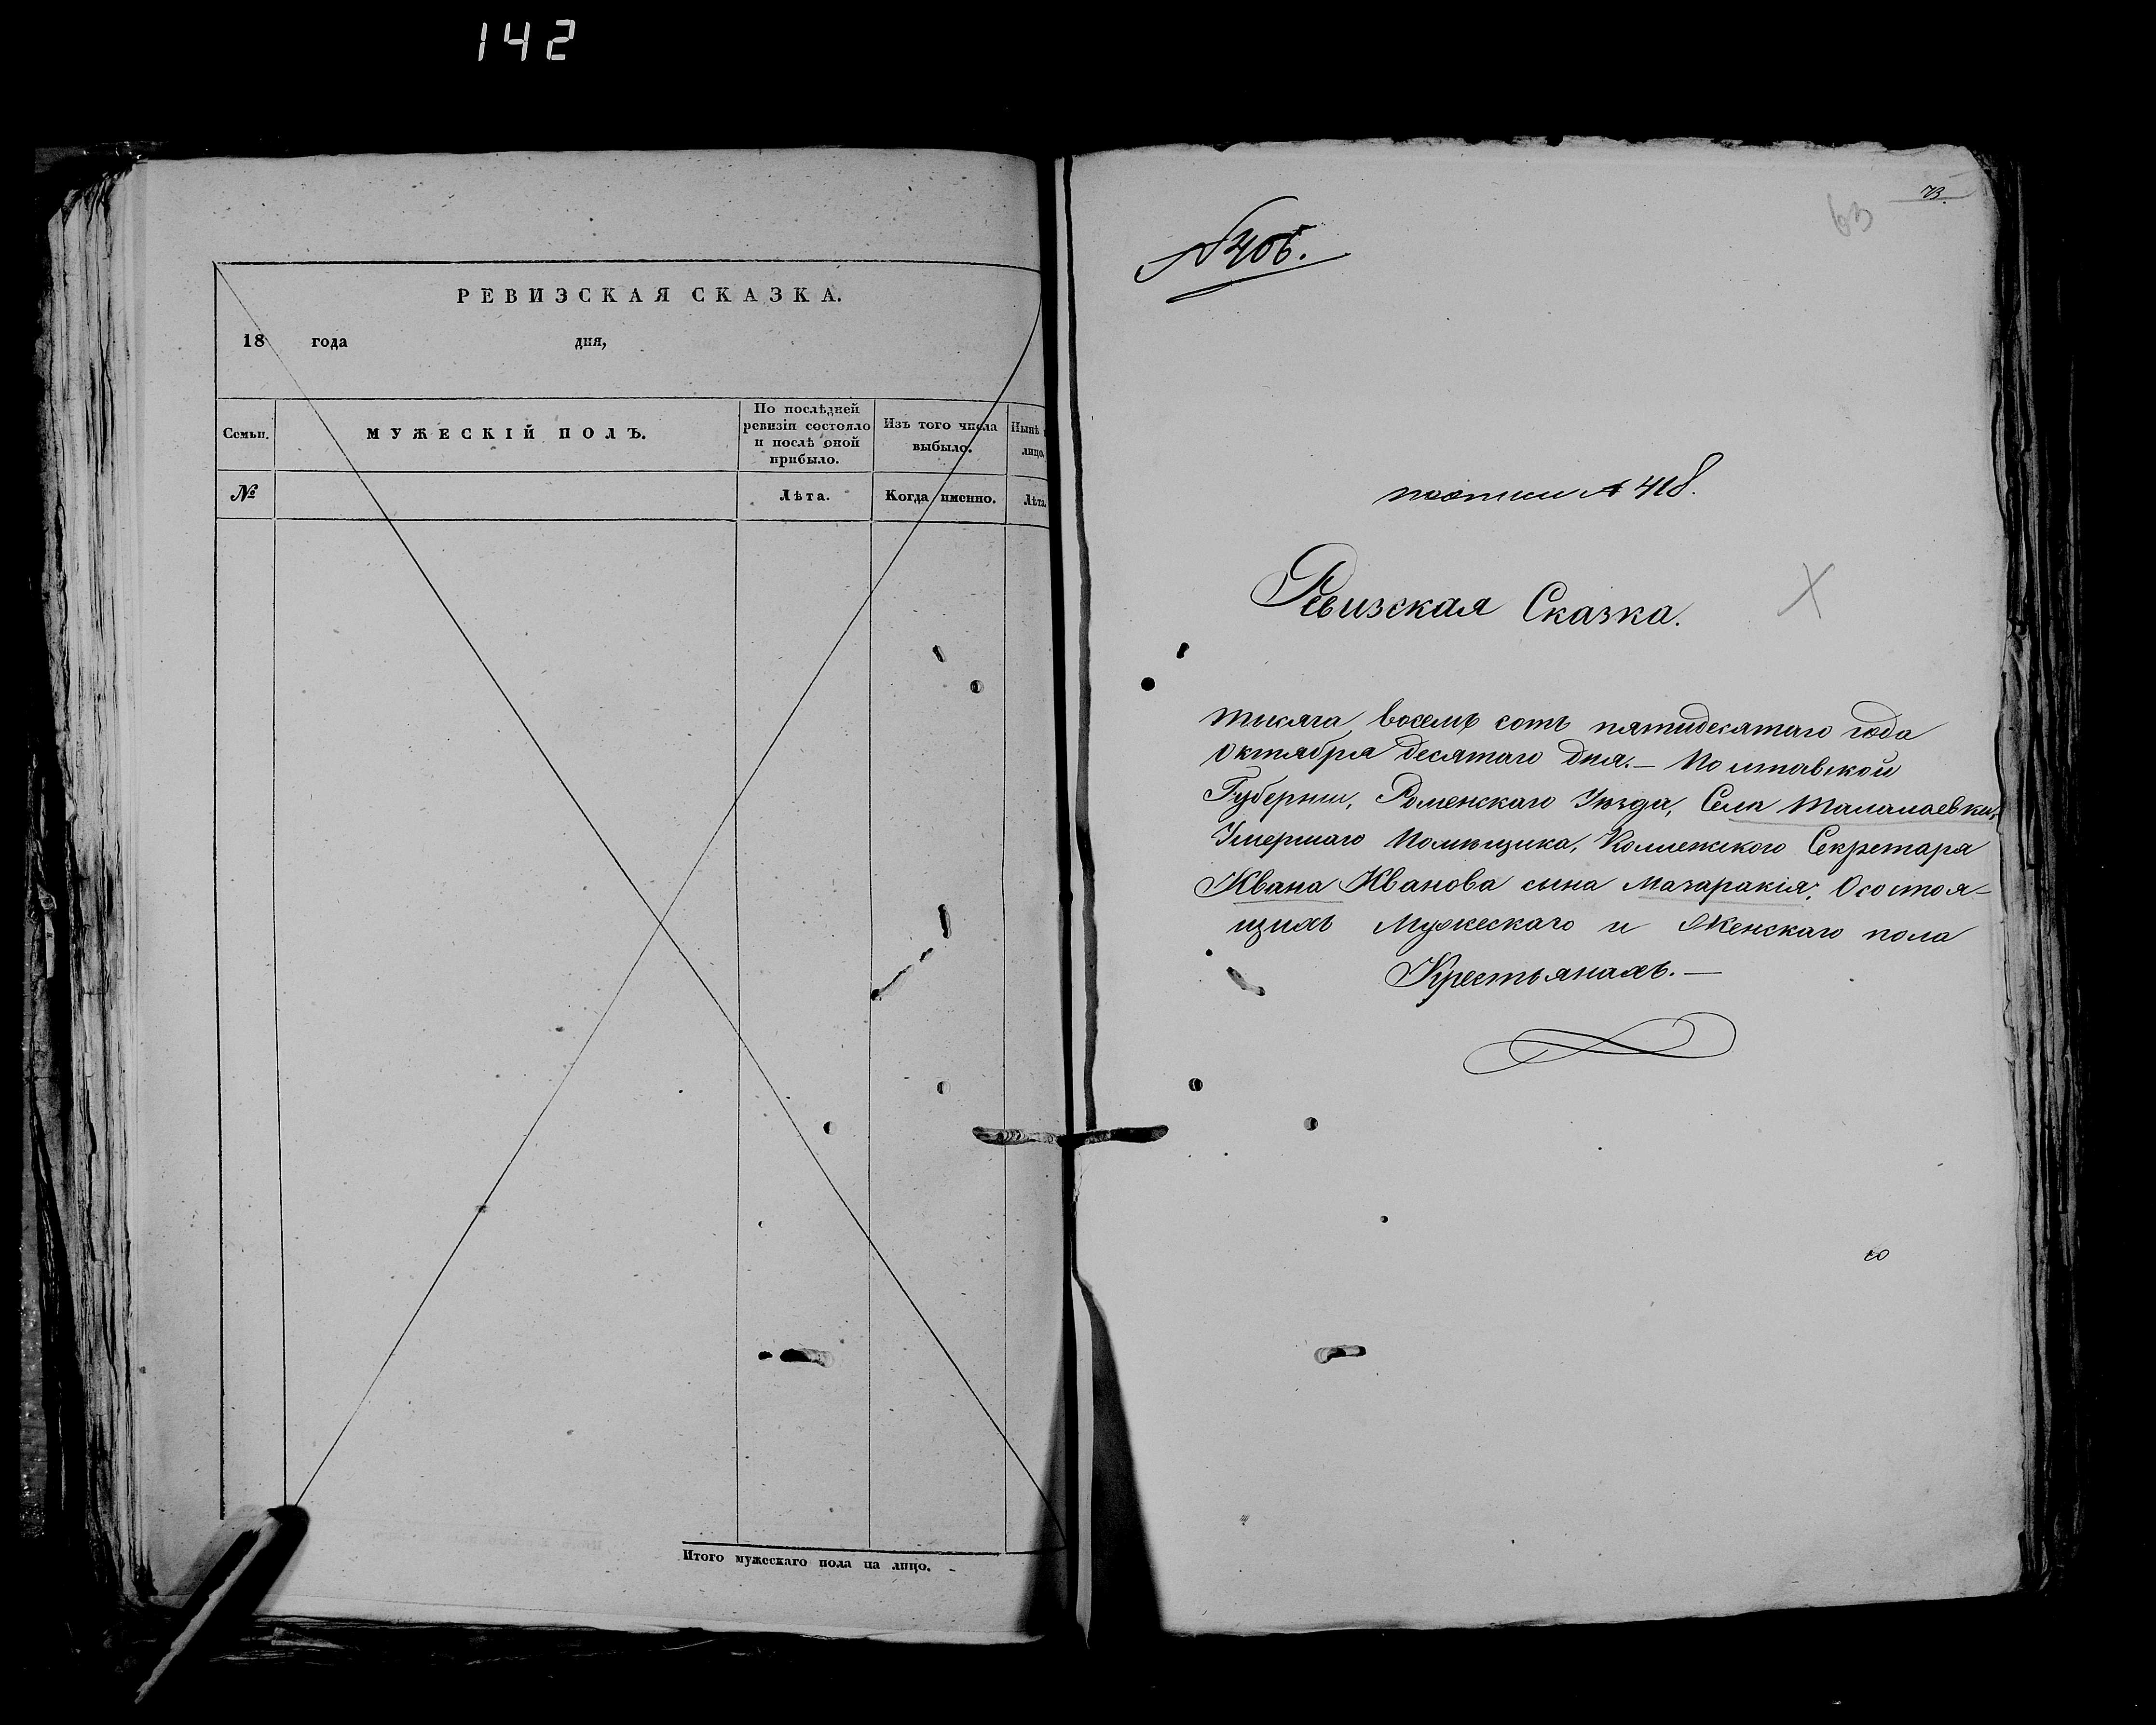 142
РЕВИЗСКАЯ СКАЗКА.
18 года дня,
Семьи.
МУЖЕСКІЙ ПОЛЪ.
По послѣдней
ревизіи состояло
и послѣ оной
прибыло.
Изъ того числа
выбыло.
Нынѣ
лицо.
№
Лѣта.
Когда именно.
Лѣта.
Итого мужескаго пола на лицо.
73.
63
№406.
по описи № 418.
Ревизская Сказка.
тысяча восемь сотъ пятидесятаго года
Октября десятаго дня.— Полтавской
Губерніи, Роменскаго Уезда, Села Талалаевки,
Умершаго Помѣщика, Коллежского Секретаря
Ивана Иванова сына Мачаракія, О состоя-
щихъ Мужескаго и Женскаго пола
Крестьянахъ.—